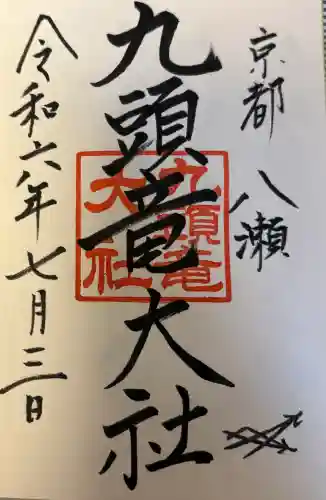 京都 八瀬
九頭竜大社
九頭竜
大社
令和六年七月三日